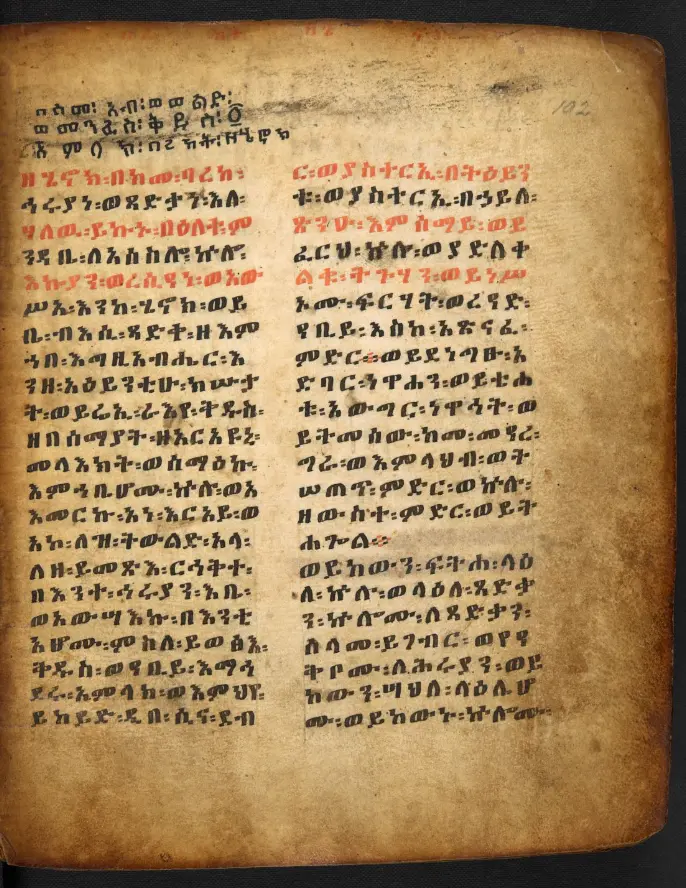 በስመ፡ አብ፡ወወልድ፡
ወመንፈስ፡ቅዱስ፡፩
አምላክ፡በረከት፡ዘሄኖክ
ዘሄኖክ፡በከመ፡ባረከ፡
ኅሩያነ፡ወጻድቃነ፡እለ፡
ሃለዉ፡ይኩኑ፡በዕለተ፡ም
ንዳቤ፡ለአሰስሎ፡ኵሎ፡
እኩያን፡ወረሲዓነ፡ወአው
ሥአ፡እንከ፡ሄኖክ፡ወይ
ቤ፡ብእሲ፡ጻድቅ፡ዘእም
ኀበ፡እግዚአብሔር፡እ
ንዘ፡አዕይንቲሁ፡ክሡታ
ት፡ወይሬኢ፡ራእየ፡ቅዱስ፡
ዘበሰማያት፡ዘአርአዩኒ፡
መላእክት፡ወሰማዕኩ፡
እምኀቤሆሙ፡ኵሎ፡ወአ
እመርኩ፡አነ፡እርአይ፡ወ
አኮ፡ለዝ፡ትውልድ፡አላ፡
ለዘ፡ይመጽእ፡ርኅቅተ፡
በእንተ፡ኅሩያን፡እቤ፡
ወአውሣእኩ፡በእንቲ
አሆሙ፡ምስለ፡ይወፅእ፡
ቅዱስ፡ወዓቢይ፡እማኅ
ደሩ፡አምላክ፡ወእምህየ፡
ይከይድ፡ዲበ፡ሲና፡ደብ
ር፡ወያስተርኢ፡በትዕይን
ቱ፡ወያስተርኢ፡በኃይለ፡
ጽንዑ፡እምሰማይ፡ወይ
ፈርህ፡ኵሉ፡ወያድለቀ
ልቁ፡ትጉሃን፡ወይነሥ
ኦሙ፡ፍርሃት፡ወረዓድ፡
ዓቢይ፡እስከ፡አጽናፈ፡
ምድር፡፡ወይደነግፁ፡አ
ድባር፡ነዋኃን፡ወይቴሐ
ቱ፡አውግር፡ነዋኃት፡ወ
ይትመሰው፡ከመ፡መዓረ፡
ግራ፡ወእምላህብ፡ወት
ሠጠም፡ምድር፡ወኵሉ፡
ዘውስተ፡ምድር፡ወይት
ሐጐል፡፡
ወይከውን፡ፍትሐ፡ላዕ
ለ፡ኵሉ፡ወላዕለ፡ጻድቃ
ን፡ኵሎሙ፡ለጻድቃን፡
ሰላመ፡ይገብር፡ወየዓ
ቅቦሙ፡ለኅሩያን፡ወይ
ከውን፡ሣህለ፡ላዕሌሆ
ሙ፡ወይከውኑ፡ኵሎሙ፡
102